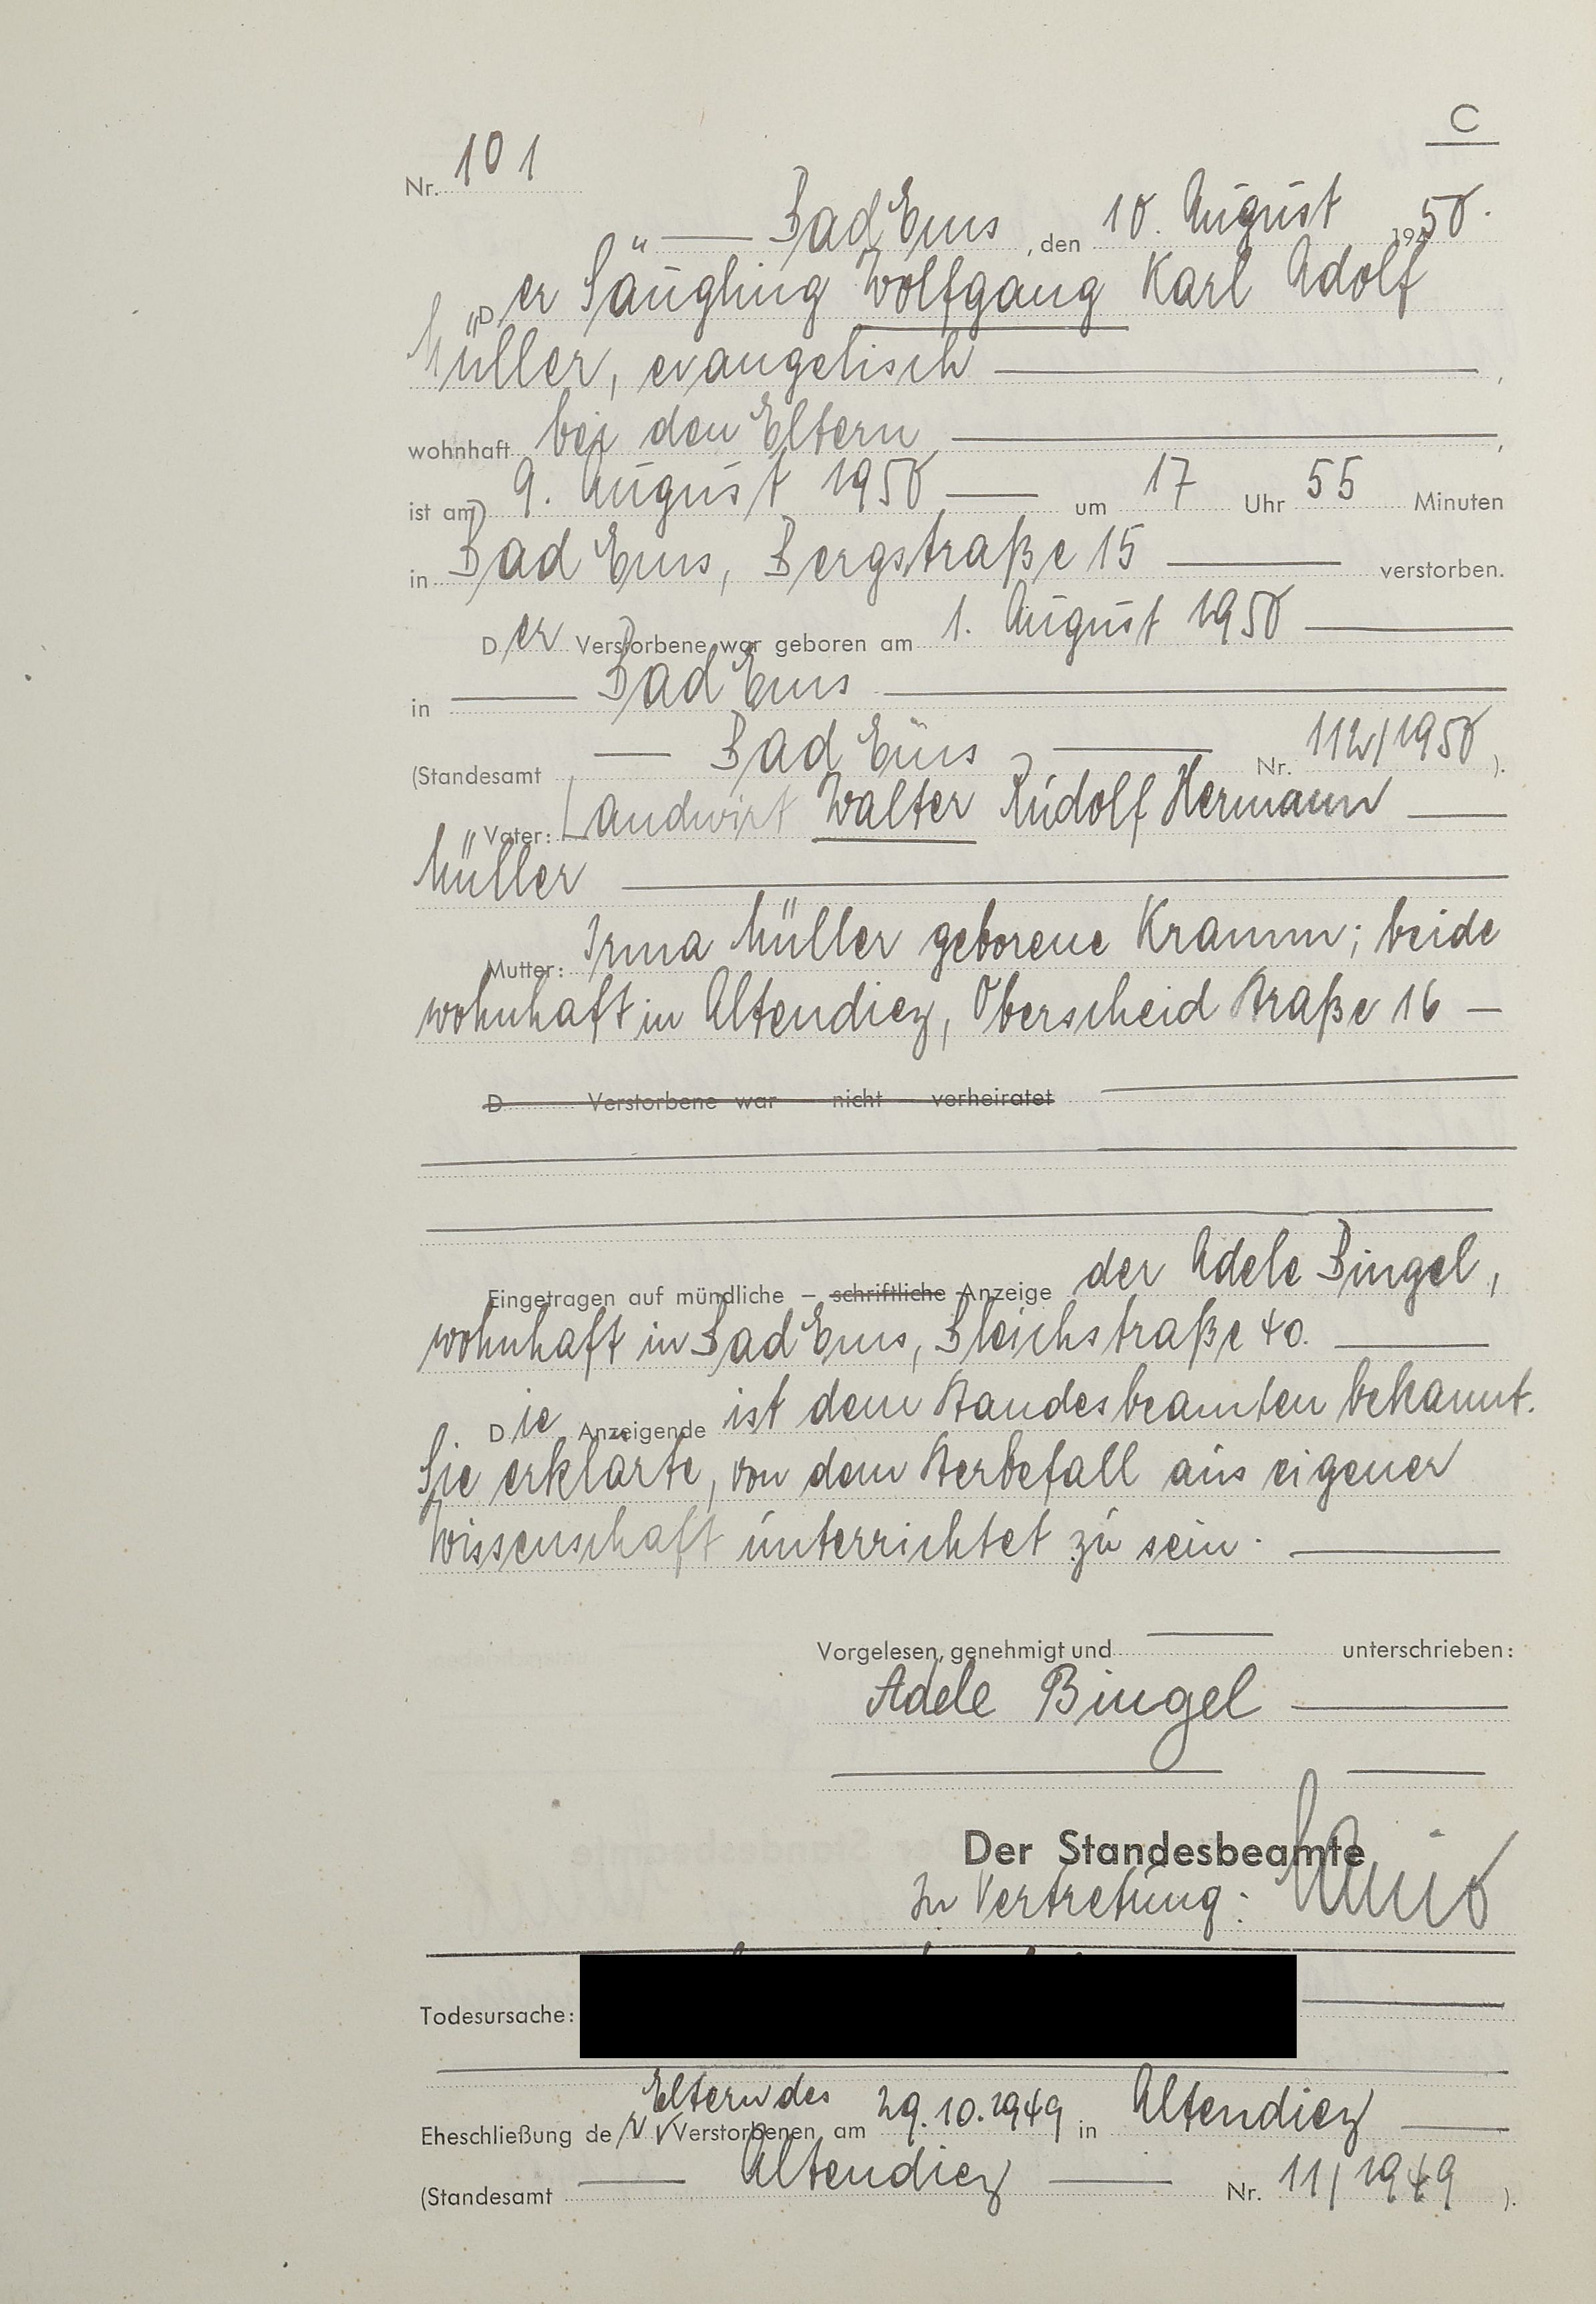 C
Nr. 101
Bad Ems, den 10. August 1950.
Der Säugling Wolfgang Karl Adolf
Müller, evangelisch,
wohnhaft bei den Eltern,
ist am 9. August 1950 um 17 Uhr 55 Minuten
in Bad Ems, Bergstraße 15 verstorben.
Der Verstorbene war geboren am 1. August 1950
in Bad Ems
(Standesamt Bad Ems Nr. 112/1950).
Vater: Landwirt Walter Rudolf Hermann
Müller
Mutter: Irma Müller geborene Kramm; beide
wohnhaft in Altendiez, Oberscheid Straße 16 —
D Verstorbene war nicht verheiratet
Eingetragen auf mündliche – schriftliche Anzeige der Adele Bingel,
wohnhaft in Bad Ems, Bleichstraße 40.
Die Anzeigende ist dem Standesbeamten bekannt.
Sie erklärte, von dem Sterbefall aus eigener
Wissenschaft unterrichtet zu sein.
Vorgelesen, genehmigt und unterschrieben:
Adele Bingel
Der Standesbeamte
In Vertretung:
Todesursache:
Eltern des
Eheschließung der Verstorbenen am 29.10.1949 in Altendiez
(Standesamt Altendiez Nr. 11/1949).